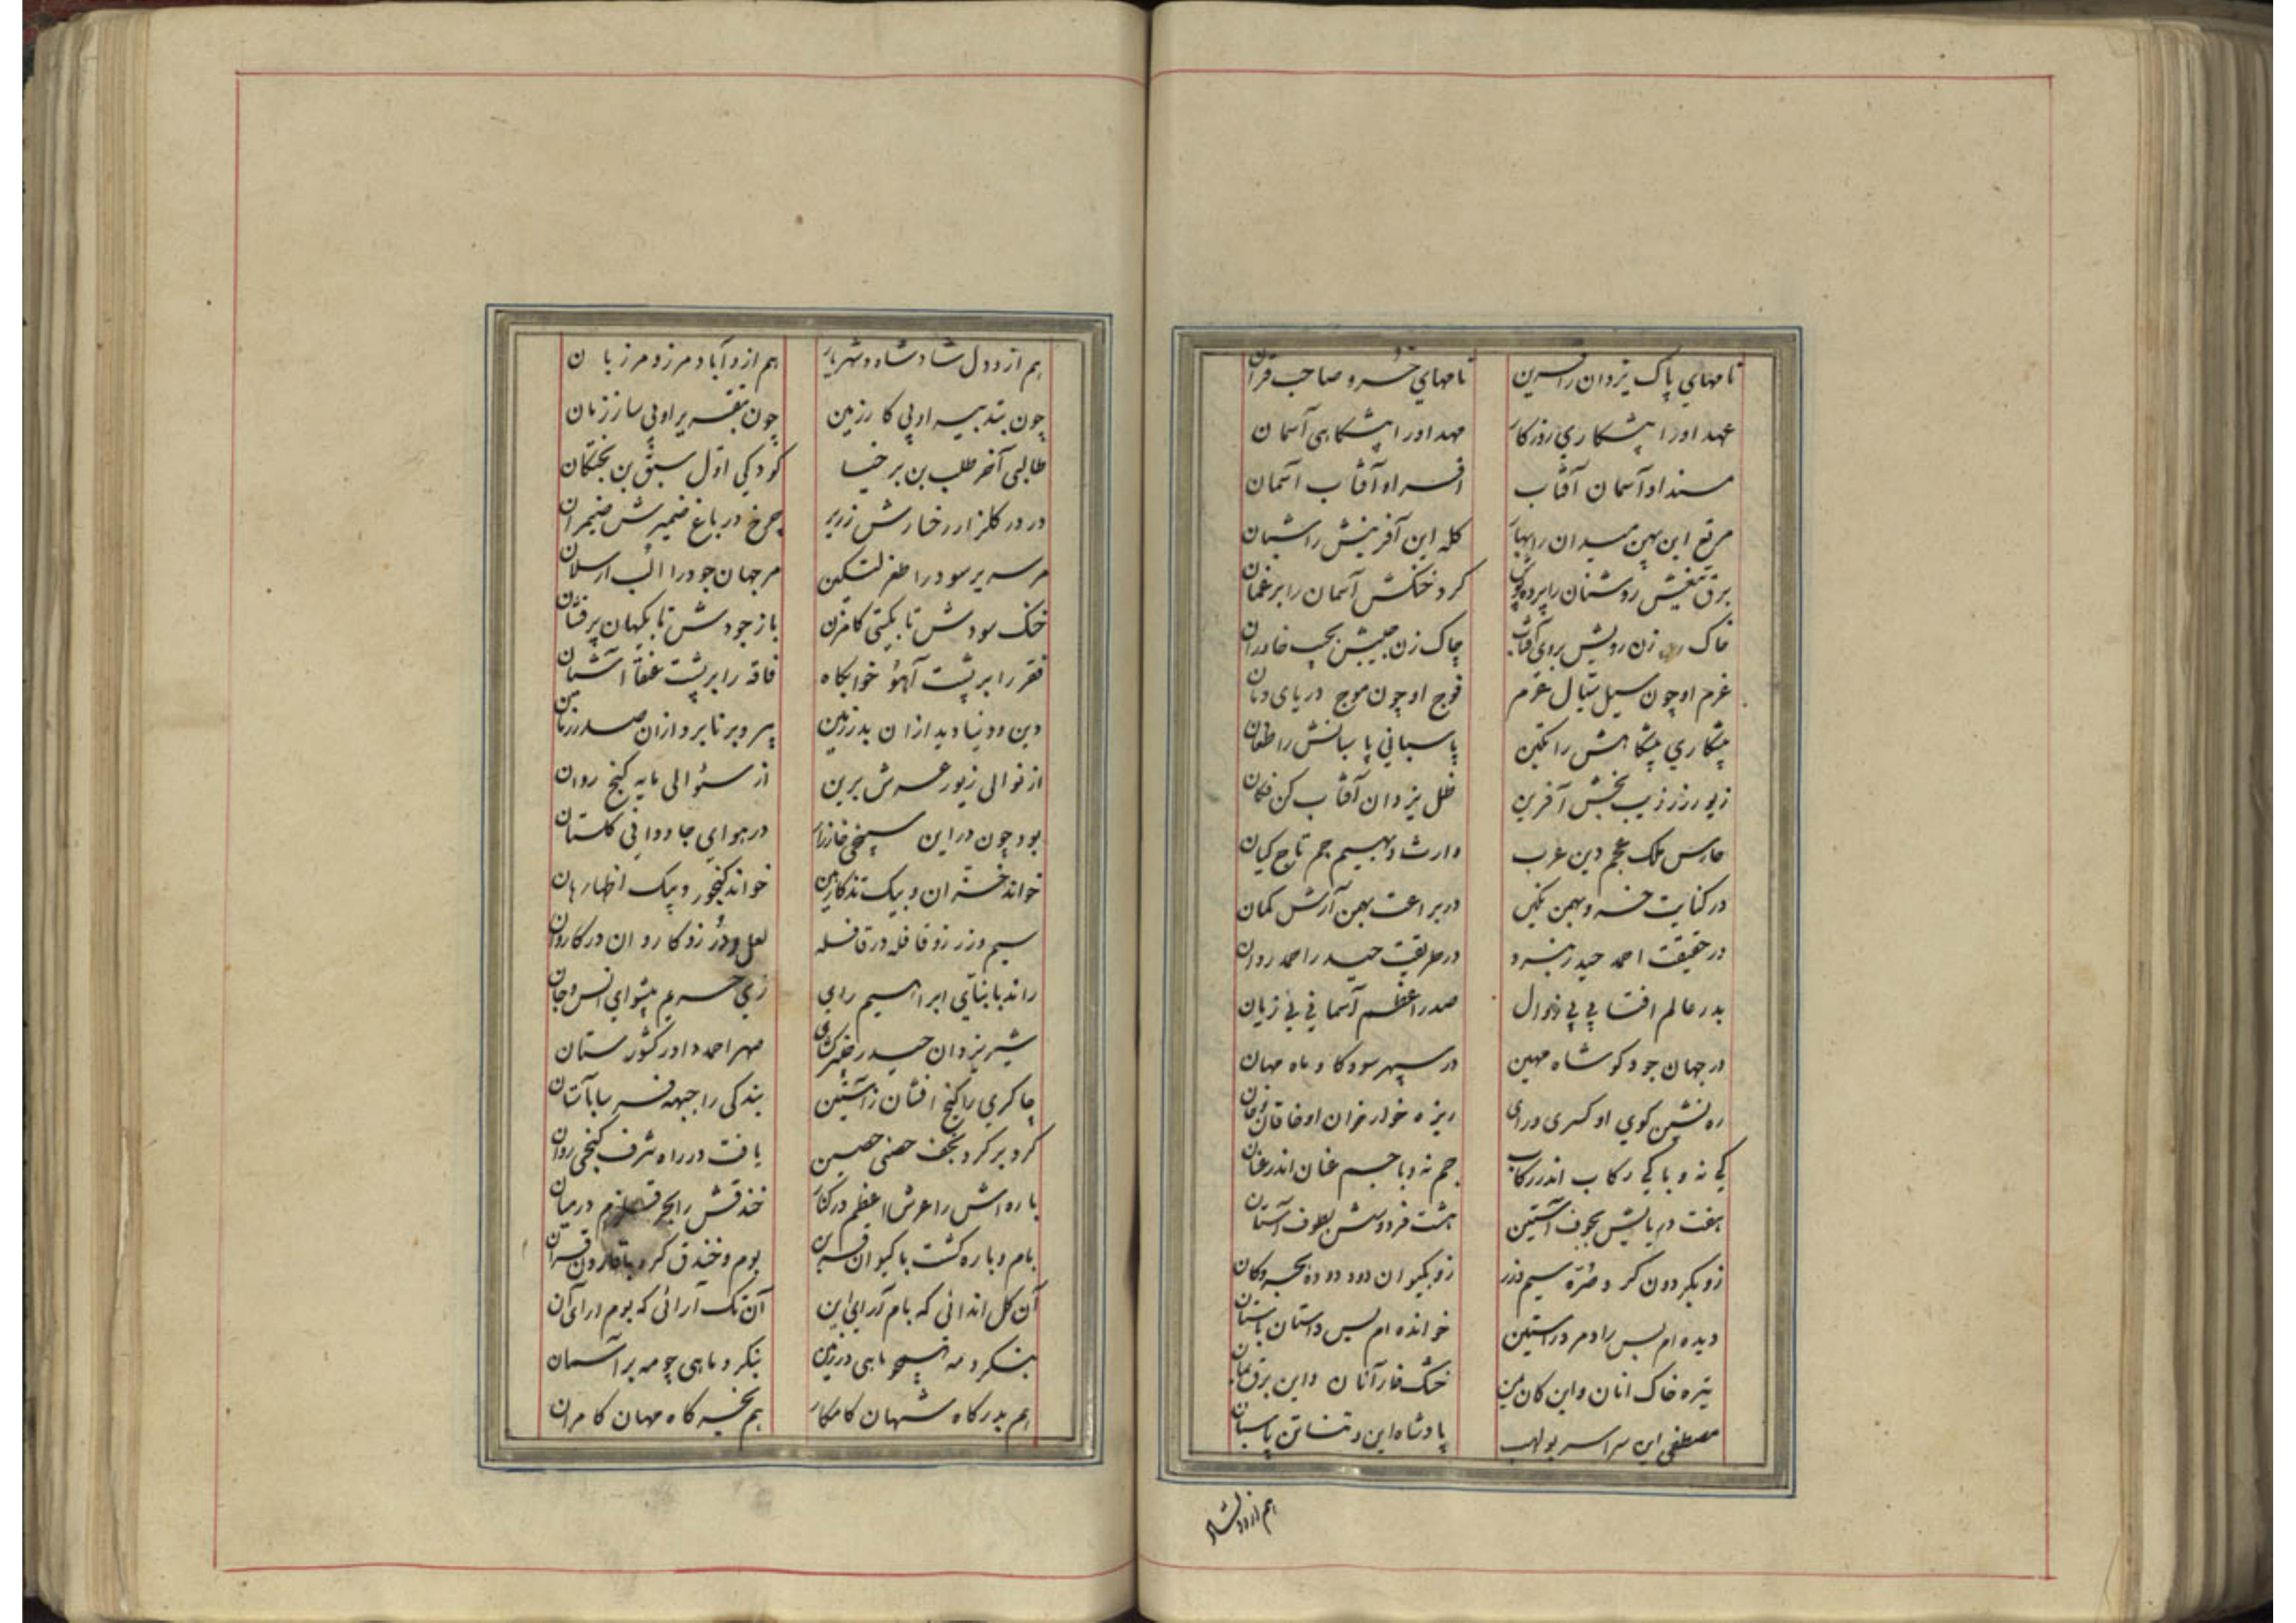 نامهای پاک یزدان رافرین نامهای خسرو صاحب قران
عهد او را پیشکاری روزکار مهد او را پیشکاهی آسمان
مسند او آسمان آفتاب افسر او آفتاب آسمان
مرتع این بهن میدان را بهار کله این آفرینش را شبان
برق تیغش روشنان را پرده پوش کرد خنکش آسمان را بر غمان
خاک زن رویش بروی آفتاب چاک زن جیبش بجیب خاوران
عزم او چون سیل سیال عرم فوج او چون موج دریای دمان
پیشکاری پیشکاهش را تکین پاسبانی پاسبانش را طغان
زیور زیب بخش آفرین ظل یزدان آفتاب کن فکان
حارس ملک عجم دین عرب وارث دیهیم جم تاج کیان
در کنایت خسرو بهمن نکین در براعت بهمن آرش کمان
در حقیقت احمد حیدر نبرد در طریقت حیدر احمد روان
بدر عالم افتابی بی زوال صدر اعظم آسمانی بی زیان
در جهان جود کو شاه مهین در سپهر سود کاو ماه مهان
ره نشین کوی او کسری و رای ریزه خوار خوان او خاقان و خان
کی نه و با کی رکاب اندر رکاب جم نه و با جم عنان اندر عنان
هفت دریایش بجوف آستین هشت فردوسش بطوف آستان
زو بکردون کرد صره سیم و زر زو بکیوان دود دوده بحر و کان
دیده ام بس راد مرد راستین خوانده ام بس داستان باستان
تیره خاک انان و این کان خشک خار آنان و این برق یمان
مصطفی این سراسر بولهب پادشاه این و تن پاسبان
هم از و دلشاد
هم از و دل شاد شاه و شهریار هم از و آباد مرز و مرزبان
چون بتدبیر او پی کار زمین چون بتقریر او پی ساز زمان
طالبی آخر طلب بن برخیا کودکی اول سبق بن بختکان
درد در کلزار رخسارش زریر چرخ در باغ ضمیرش ضیمران
مر سریر سود را طغرلتکین مر جهان جود را الب ارسلان
خنک سودش تا بکیتی کامزن باز جودش تا بکیهان پر فشان
فقر را بر پشت آهو خوابکاه فاقه را بر پشت عنقا آشیان
دین و دنیا دید از ان بدر زمین پیر و برنا برد از ان صدر زمان
از نوالی زیور عرش برین از سئوالی مایه کنج روان
بود چون در این سپنجی خارزار در هوای جاودانی کلستان
خواند کنجور و پیک
سیم و زر زو قافله در قافله لعل و در زو کاروان در کاروان
راند با بنای ابراهیم رای زی حریم پیشوای انس و جان
شیر یزدان حیدر خیبر کشای صهر احمد داور کشور ستان
چاکری را کنج افشان ز آستین بندکی را جبهه فرسا بآستان
کرد بر کرد نجف حصنی حصین یافت در راه شرف کنجی روان
باره اش را عرش اعظم در کنار خندقش را بحر قلزم در میان
بام و باره کشت با کیوان قرین بوم و خندق کرد با قارون قران
آن کل اندائی که بام آرای این آن تک آرائی که بوم ارای آن
بنکرد مه همچو ماهی در زمین بنکرد ماهی چو مه بر آسمان
هم بدرکاه شهان کامکار هم بخرکاه مهان کامران